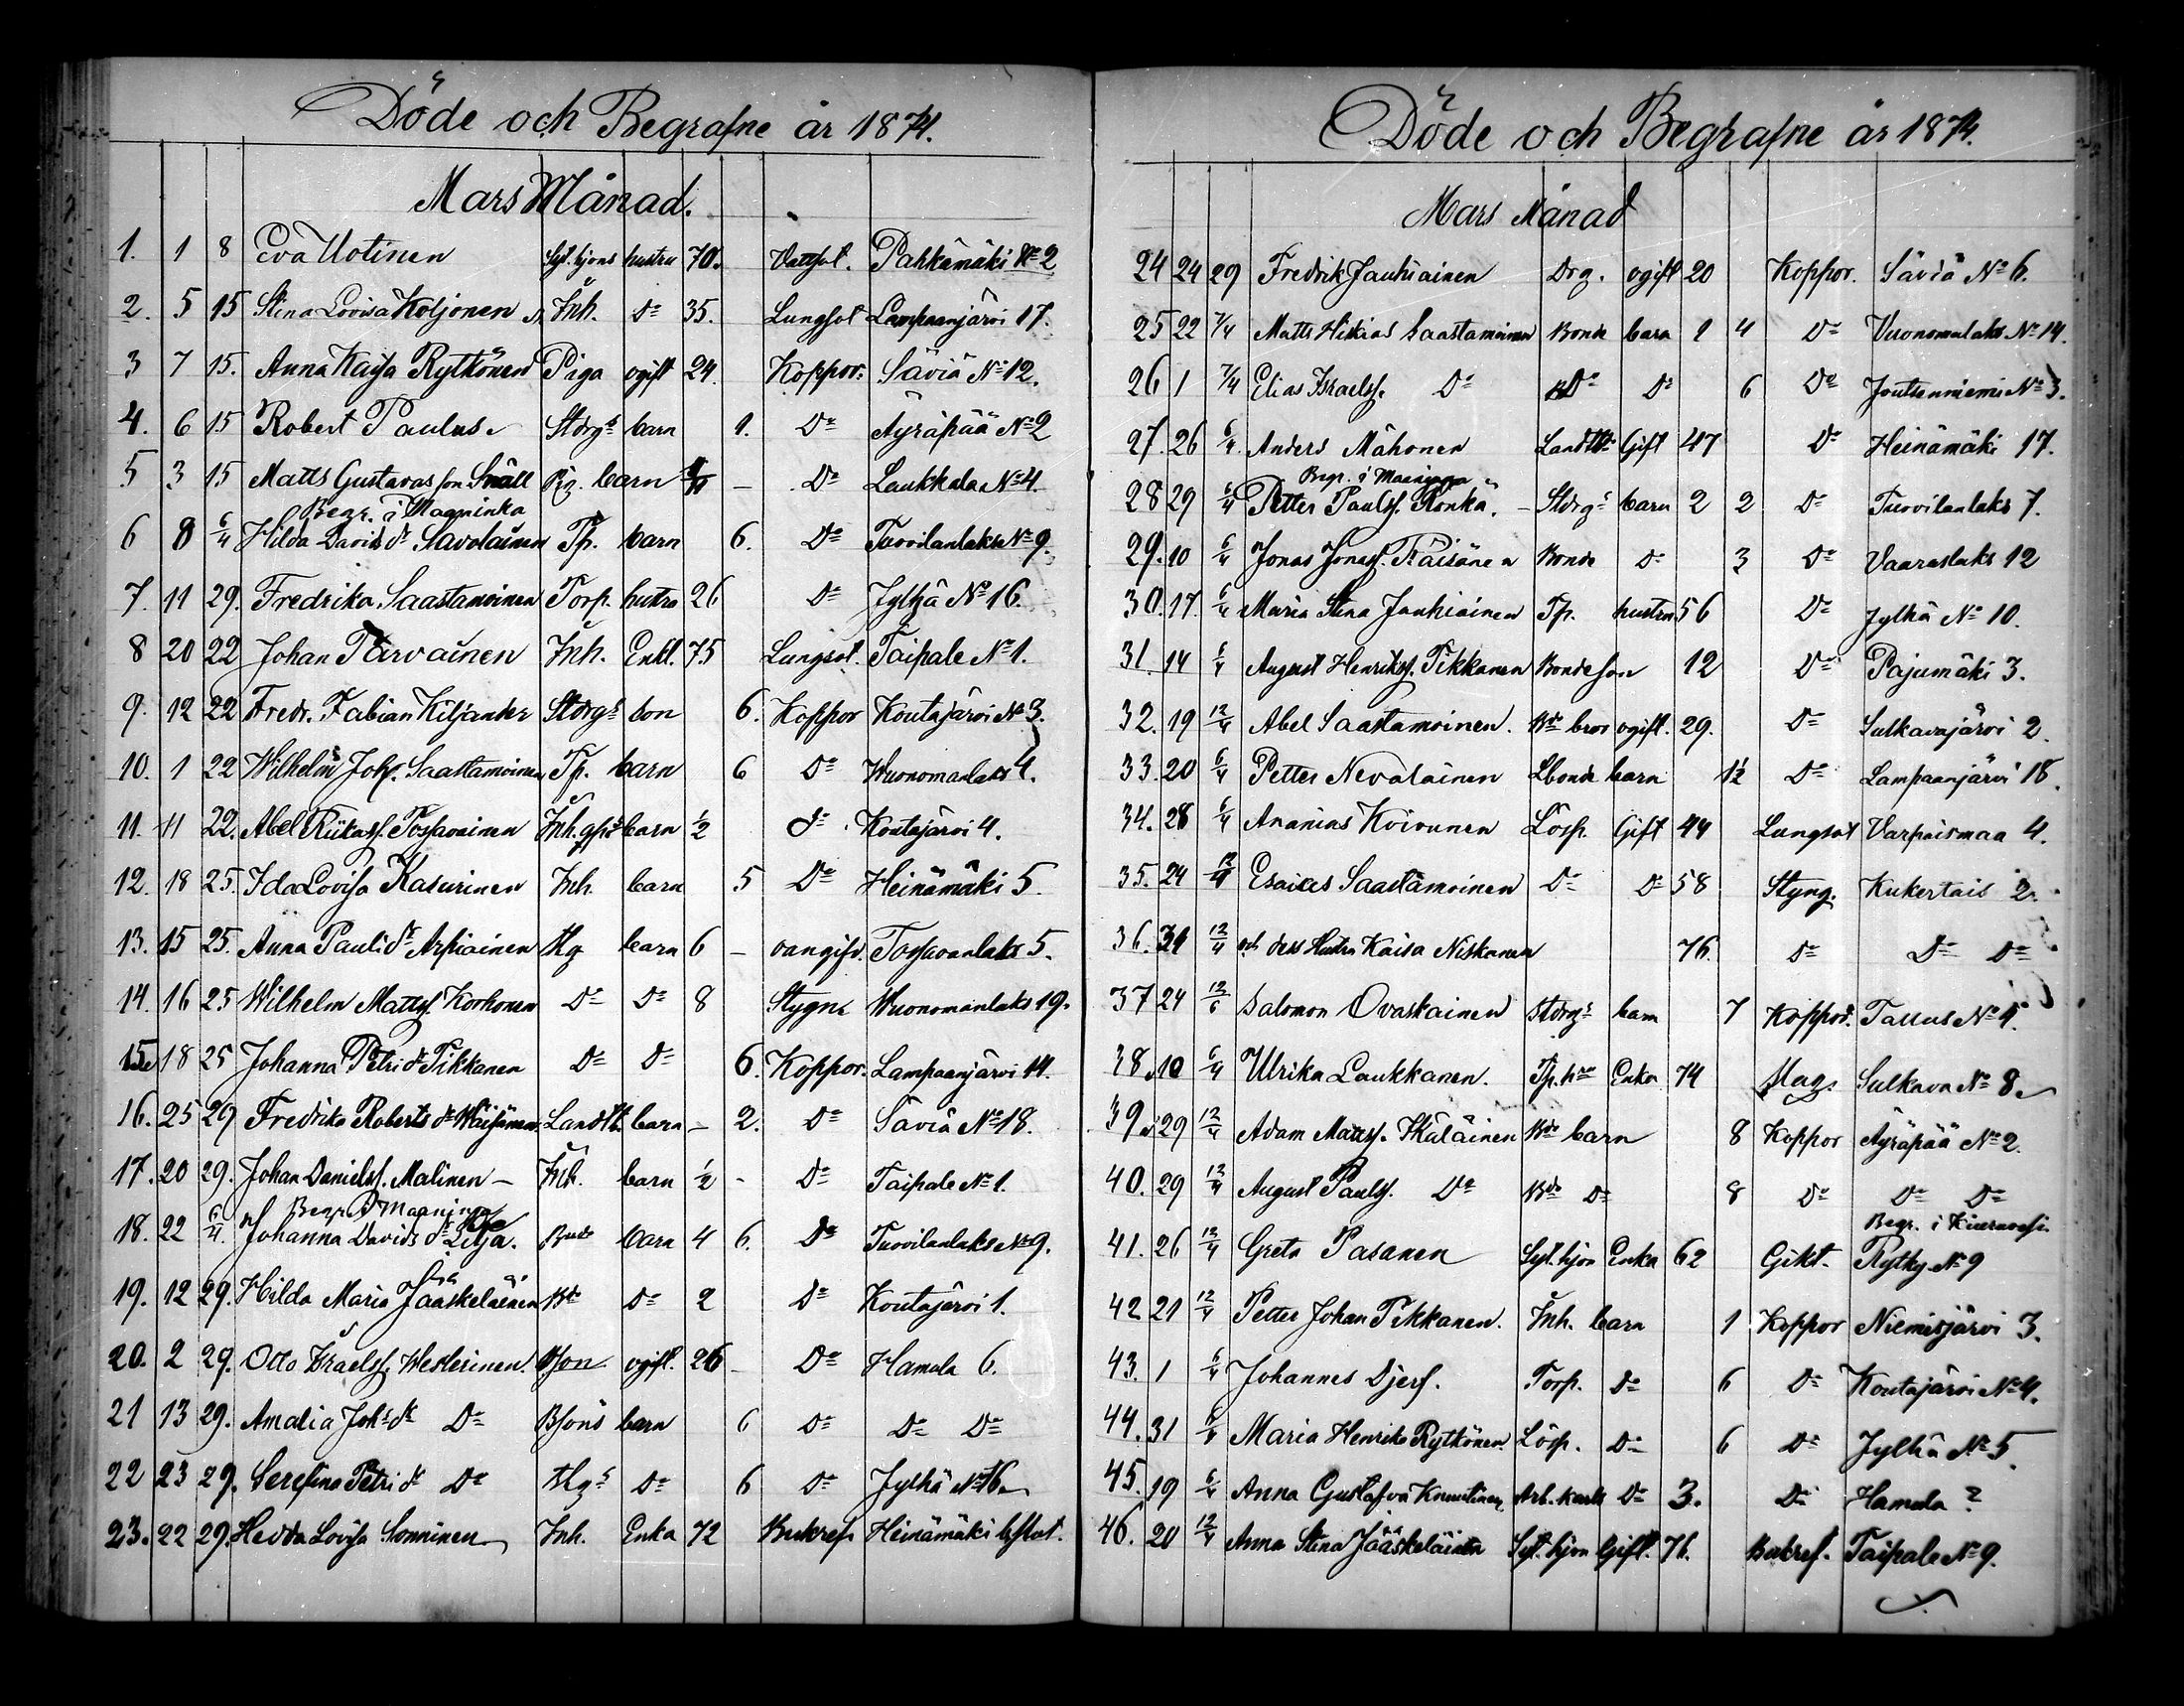 Döde och Begrafne år 1874.
Mars Månad.
1. 1 8 Eva Uotinen Syt. hjons hustru 70. Vattsot. Pahkamäki No 2
2. 5 15 Stina Lovisa Koljonen Inh. Do 35. Lungsot Lampaanjärvi 17.
3 7 15. Anna Kaisa Rytkönen Piga ogift 24. Koppor. Säviä No 12.
4. 6 15 Robert Paulus Stdrgs barn 1. Do Äyräpää No 2
5 3 15 Matts Gustavas son Snäll barn — Do Laukkala No 4.
Begr. i Magninka
6 8 6/4 Hilda Davids dr Savolainen Tp. barn 6. Do Tuovilanlaks No 9.
7. 11 29. Fredrika Saastamoinen Torp. hustru 26 Do Jylhä No 16.
8 20 22 Johan Parvainen Inh. Enkl. 75 Lungsot. Taipale No 1.
9. 12 22 Fredr. Fabian Kiljander Stdrgs son 6. Koppor Koutajärvi No 3.
10. 1 22 Wilhelm Johs. Saastamoinen Tp. barn 6 Do Wuonomanlaks 4.
11. 11 22. Abel Riikass. Tossavainen Inh. barn 1/2 do. Koutajärvi 4.
12. 18 25. Ida Lovisa Kasurinen Inh. barn 5 Do Heinämäki 5.
13. 15 25. Anna Pauli dr Arpiainen barn 6 — oangifv. Tossavanlaks 5.
14. 16 25 Wilhelm Mattss. Korhonen Do Do 8 Stygn. Wuonomanlaks 19.
15. 18 25 Johanna Petri dr Tikkanen Do Do 6. Koppor. Lampaanjärvi 14.
16. 25 29 Fredrika Roberts dr Wäisänen Landtb. barn — 2. Do Säviä No 18.
17. 20 29. Johan Danielss. Malinen — Inh. barn 1/2 - Do Taipale No 1.
Begr. i Maaninga
18. 22 6/4. Johanna Davids dr Lilja. barn 4 6. Do Tuovilanlaks No 9.
19. 12 29. Hilda Maria Jääskeläinen Bde Do 2 Do Koutajärvi 1.
20. 2 29. Otto Israelss. Westerinen. Bson ogift. 26 - Do Hamula 6.
21 13 29. Amalia Johs dr Do Bsons barn 6 Do Do Do
22 23 29. Serefina Petri dr Do Do 6 Do Jylhä No 16.
23. 22 29. Hedda Lovisa Sonninen Inh. Enka 72 Bukref. Heinämäki
Döde och Begrafne år 1874.
Mars Månad
24 24 29 Fredrik Jauhiainen Drg. ogift 20 Koppor. Säviä No 6.
25 22 7/4 Matts Hiskias Saastamoinen Bonde barn 1 4 Do Vuonomanlaks No 14.
26 1 7/4 Elias Israelss. Do Do Do 6 Do Joutsenniemi No 3.
27. 26 6/4. Anders Mähonen Landtb. Gift 47 Do Heinämäki 17.
Begr. i Maaninga
28 29 6/4 Petter Paulss. Ronkä. — Stdrgs barn 2 2 Do Tuovilanlaks 7.
29. 10 6/4 Jonas Jonass. Räisänen Bonde Do 3 Do Vaaraslaks 12
30. 17. 6/4 Maria Stina Jauhiainen Tp. hustru 56 Do Jylhä No 10.
31. 14 6/4 August Henrikss. Tikkanen Bondeson 12 Do Pajumäki 3.
32. 19 12/4 Abel Saastamoinen. Bde bror ogift. 29. Do Sulkavajärvi 2.
33. 20 6/4 Petter Nevalainen Lbonde barn 1 1/2 Do Lampaanjärvi 18.
34. 28 6/4 Ananias Koivunen Lösp. Gift 44 Lungsot Varpaismaa 4.
35. 24 12/4 Esaias Saastamoinen Do Do 58 Styng. Kukertais 2.
36. 31 12/4 och dess Hustru Kaisa Niskanen 76. Do Do Do
37 24 12/6 Salomon Ovaskainen Stdrgs barn 7 Koppor. Tallus No 4.
38. 10 6/4 Ulrika Laukkanen. Tp. hr Enka 74 Mag. Sulkava No 8.
39. 29 12/4 Adam Matss. Ikäläinen Bde barn 8 Koppor Äyräpää No 2.
40. 29 12/4 August Paulss. Do Bde Do 8 Do Do Do
Begr. i Kiuruvesi
41. 26 12/4 Greta Pasanen Syt. hjon Enka 62 Gikt. Rytky No 9
42 21 12/4 Petter Johan Tikkanen. Inh. barn 1 Koppor Niemisjärvi 3.
43. 1 6/4 Johannes Djerf. Torp. Do 6 Do Koutajärvi No 4.
44. 31 6/4 Maria Henriks Rytkönen Lösp. Do 6 Do Jylhä No 5.
45. 19 6/4 Anna Gustafva Knuutinen Arb. karls Do 3. Do Hamula ?
46. 20 12/4 Anna Stina Jääskeläinen Syt. hjon Gift. 76. Bukref. Taipale No 9.